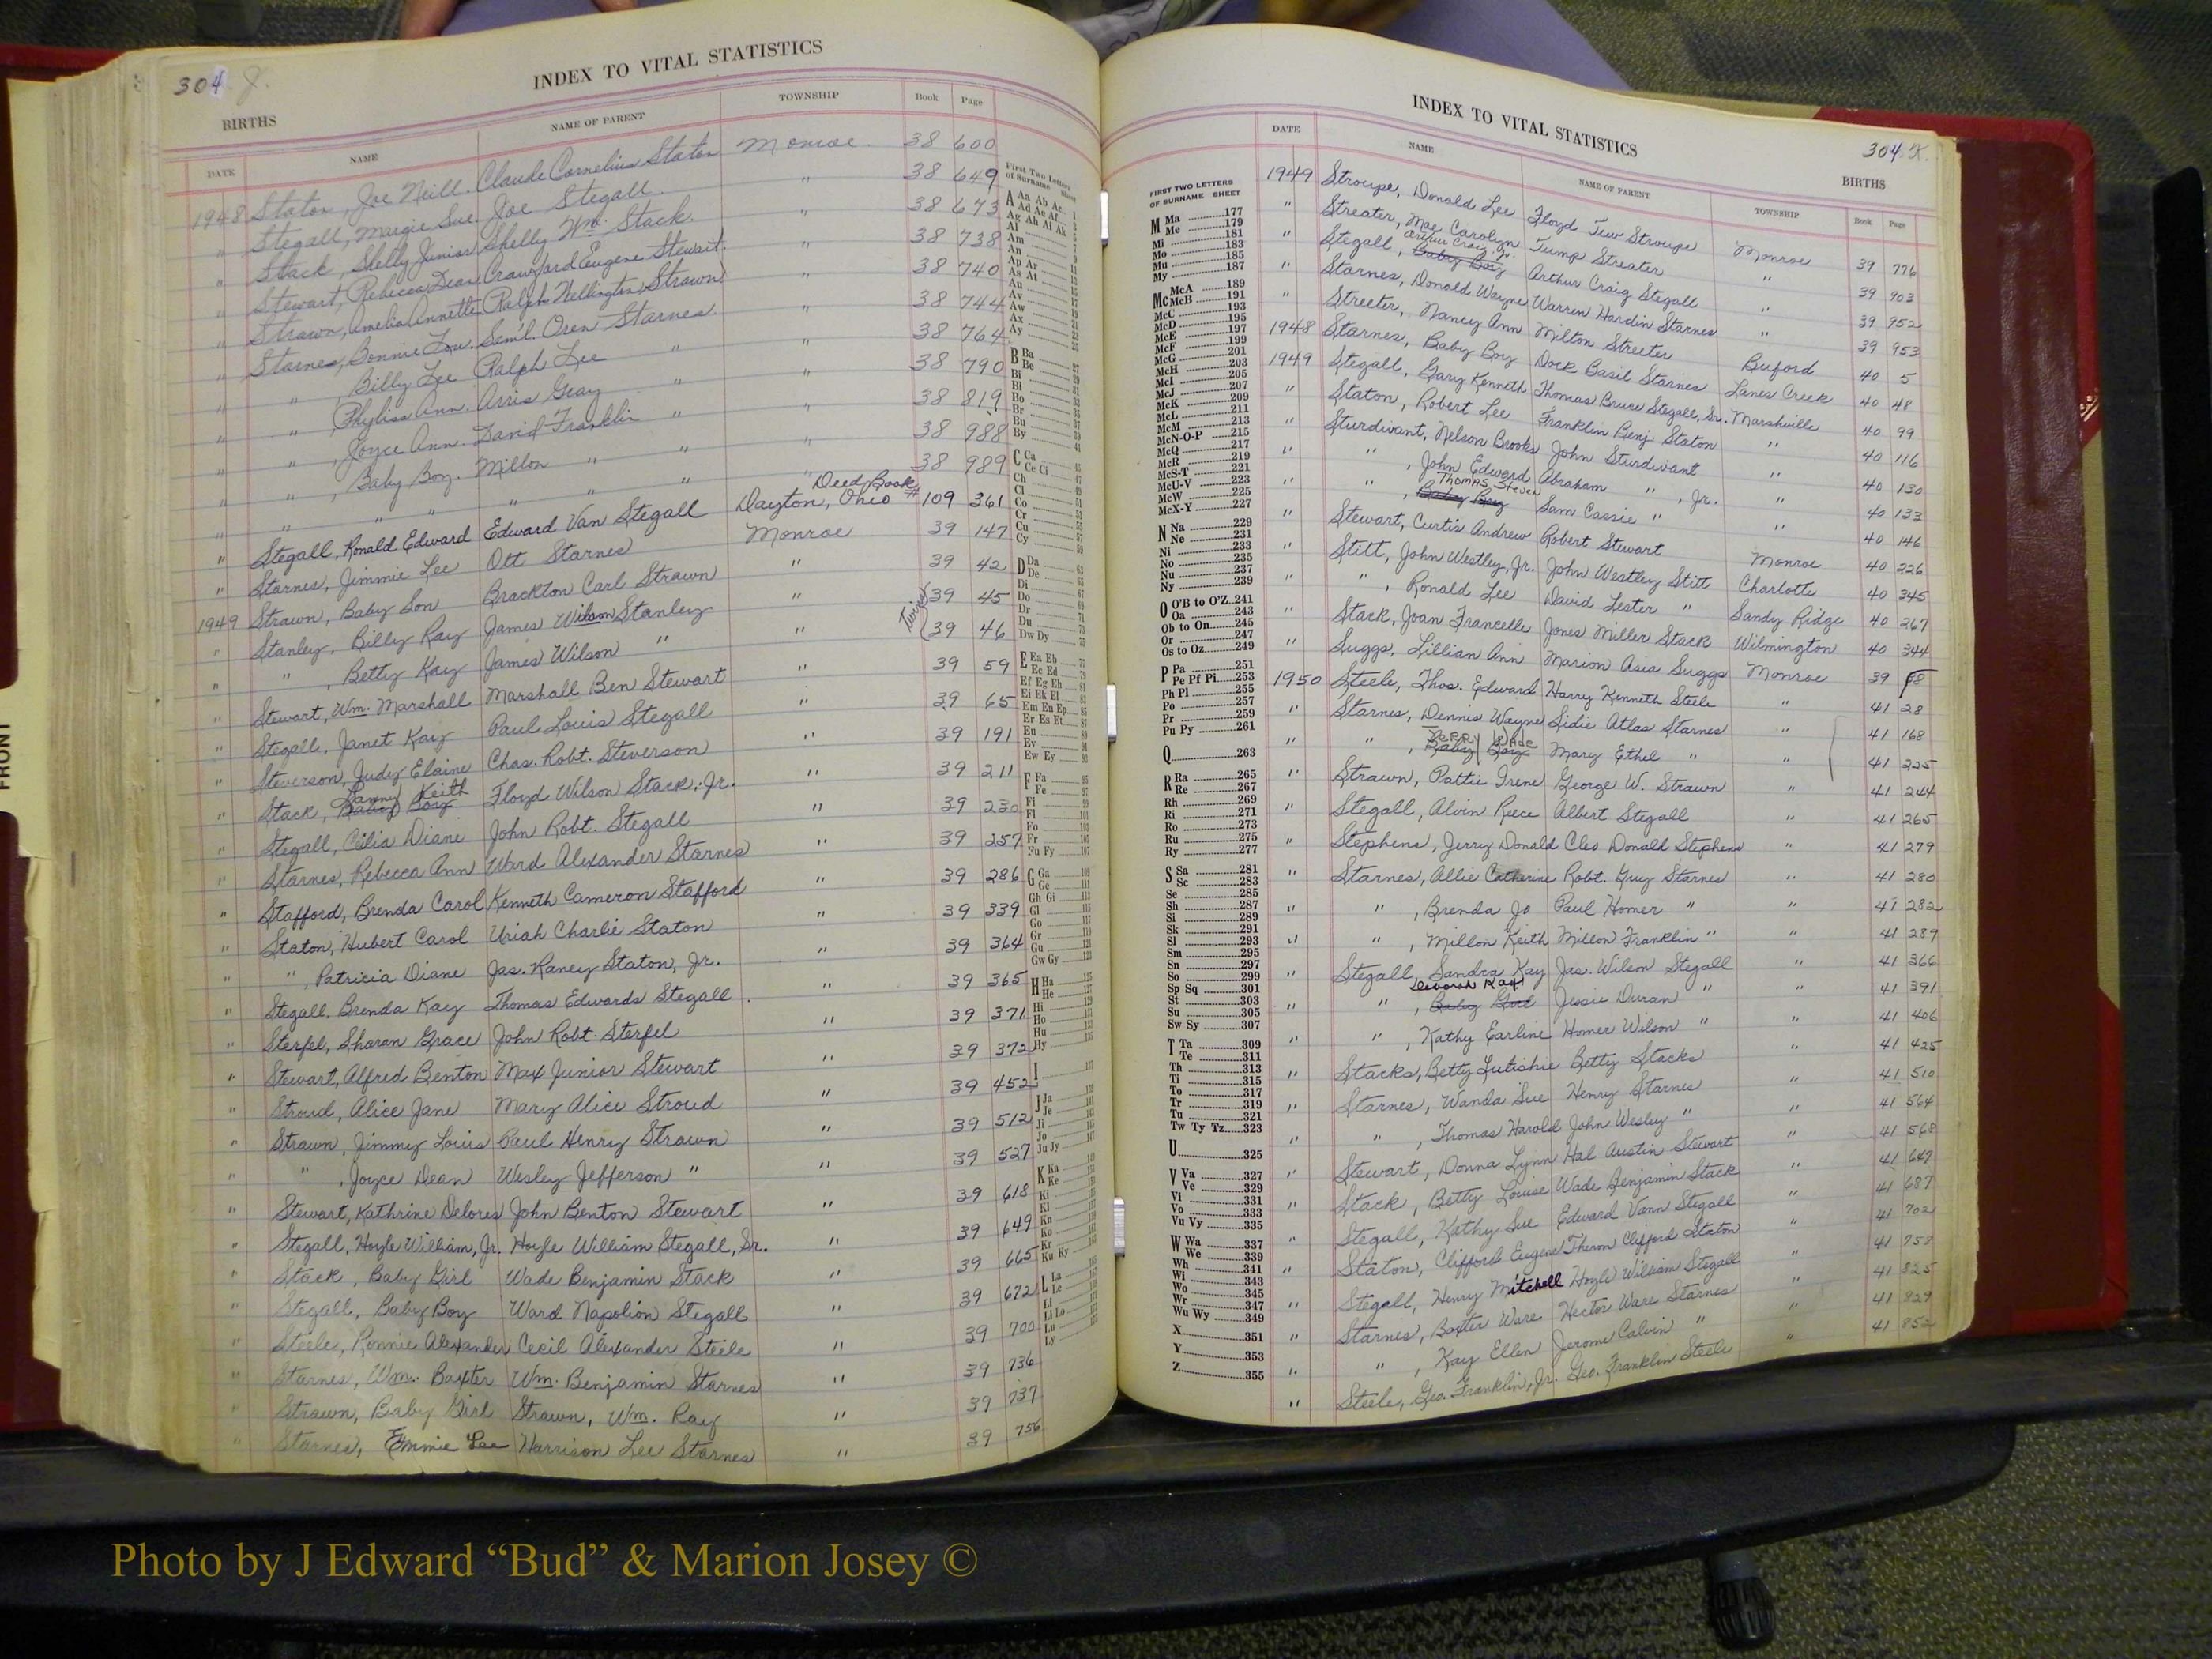 304 J.
INDEX TO VITAL STATISTICS
BIRTHS
DATE NAME NAME OF PARENT TOWNSHIP Book Page
1948 Staton, Joe Neill. Claude Cornelius Staton Monroe. 38 600
" Stegall, Margie Sue Joe Stegall. " 38 649
" Stack, Shelly Junior Shelly Wm. Stack. " 38 673
" Stewart, Rebecca Dean. Crawford Eugene Stewart. " 38 738
" Strawn, Amelia Annette Ralph Wellington Strawn " 38 740
" Starnes, Bonnie Lou. Sam'l. Oren Starnes. " 38 744
" " , Billy Lee Ralph Lee " " 38 764
" " , Phyliss Ann. Arris Gray " " 38 790
" " , Joyce Ann. David Franklin " " 38 819
" " , Baby Boy. Millon " " " 38 988
" " " " " " " " 38 989
Deed Book
" Stegall, Ronald Edward Edward Van Stegall Dayton, Ohio #109 361
" Starnes, Jimmie Lee Ott Starnes Monroe 39 147
1949 Strawn, Baby Son Brackton Carl Strawn " 39 42
" Stanley, Billy Ray James Wilson Stanley " Twins 39 45
" " , Betty Kay James Wilson " " 39 46
" Stewart, Wm. Marshall Marshall Ben Stewart " 39 59
" Stegall, Janet Kay Paul Louis Stegall " 39 65
" Steverson, Judy Elaine Chas. Robt. Steverson " 39 191
Danny Keith
" Stack, Baby Boy Floyd Wilson Stack, Jr. " 39 211
" Stegall, Celia Diane John Robt. Stegall " 39 230
" Starnes, Rebecca Ann Ward Alexander Starnes " 39 257
" Stafford, Brenda Carol Kenneth Cameron Stafford " 39 286
" Staton, Hubert Carol Uriah Charlie Staton " 39 339
" " , Patricia Diane Jas. Raney Staton, Jr. " 39 364
" Stegall, Brenda Kay Thomas Edwards Stegall " 39 365
" Sterfel, Sharon Grace John Robt. Sterfel " 39 371
" Stewart, Alfred Benton Max Junior Stewart " 39 372
" Stroud, Alice Jane Mary Alice Stroud " 39 452
" Strawn, Jimmy Louis Paul Henry Strawn " 39 512
" " , Joyce Dean Wesley Jefferson " " 39 527
" Stewart, Kathrine Delores John Benton Stewart " 39 618
" Stegall, Hoyle William, Jr. Hoyle William Stegall, Sr. " 39 649
" Stack, Baby Girl Wade Benjamin Stack " 39 665
" Stegall, Baby Boy Ward Napolion Stegall " 39 672
" Steele, Ronnie Alexander Cecil Alexander Steele " 39 700
" Starnes, Wm. Baxter Wm. Benjamin Starnes " 39 736
" Strawn, Baby Girl Strawn, Wm. Ray " 39 737
" Starnes, Emmie Lee Harrison Lee Starnes " 39 756
First Two Letters
of Surname Sheet
A Aa Ab Ac
Ad Ae Af
Ag Ah Ai Ak
Al
Am
An
Ap Ar
As At
Au
Av
Aw
Ax
Ay
B Ba
Be
Bi
Bl
Bo
Br
Bu
By
C Ca
Ce Ci
Ch
Cl
Co
Cr
Cu
Cy
D Da
De
Di
Do
Dr
Du
Dw Dy
E Ea Eb
Ec Ed
Ef Eg Eh
Ei Ek El
Em En Ep
Er Es Et
Eu
Ev
Ew Ey
F Fa
Fe
Fi
Fl
Fo
Fr
Fu Fy
G Ga
Ge
Gh Gi
Gl
Go
Gr
Gu
Gw Gy
H Ha
He
Hi
Ho
Hu
Hy
I
J Ja
Je
Ji
Jo
Ju Jy
K Ka
Ke
Ki
Kl
Kn
Ko
Kr
Ku Ky
L La
Le
Li
Ll Lo
Lu
Ly
INDEX TO VITAL STATISTICS
304 K.
BIRTHS
DATE NAME NAME OF PARENT TOWNSHIP Book Page
FIRST TWO LETTERS
OF SURNAME SHEET
M Ma 177
Me 179
Mi 181
Mo 183
Mu 185
My 187
Mc McA 189
McB 191
McC 193
McD 195
McE 197
McF 199
McG 201
McH 203
McI 205
McJ 207
McK 209
McL 211
McM 213
McN-O-P 215
McQ 217
McR 219
McS-T 221
McU-V 223
McW 225
McX-Y 227
N Na 229
Ne 231
Ni 233
No 235
Nu 237
Ny 239
O O'B to O'Z 241
Oa 243
Ob to On 245
Or 247
Os to Oz 249
P Pa 251
Pe Pf Pi 253
Ph Pl 255
Po 257
Pr 259
Pu Py 261
Q 263
R Ra 265
Re 267
Rh 269
Ri 271
Ro 273
Ru 275
Ry 277
S Sa 281
Sc 283
Se 285
Sh 287
Si 289
Sk 291
Sl 293
Sm 295
Sn 297
So 299
Sp Sq 301
St 303
Su 305
Sw Sy 307
T Ta 309
Te 311
Th 313
Ti 315
To 317
Tr 319
Tu 321
Tw Ty Tz 323
U 325
V Va 327
Ve 329
Vi 331
Vo 333
Vu Vy 335
W Wa 337
We 339
Wh 341
Wi 343
Wo 345
Wr 347
Wu Wy 349
X 351
Y 353
Z 355
1949 Stroupe, Donald Lee Floyd Tew Stroupe Monroe 39 776
" Streater, Mae Carolyn Tump Streater " 39 903
Arthur Craig Jr.
" Stegall, Baby Boy Arthur Craig Stegall " 39 952
" Starnes, Donald Wayne Warren Hardin Starnes " 39 953
" Streeter, Nancy Ann Milton Streeter Buford 40 5
1948 Starnes, Baby Boy Dock Basil Starnes Lanes Creek 40 48
1949 Stegall, Gary Kenneth Thomas Bruce Stegall, Sr. Marshville 40 99
" Staton, Robert Lee Franklin Benj. Staton " 40 116
" Sturdivant, Nelson Brooks John Sturdivant " 40 130
" " , John Edward Abraham " , Jr. " 40 133
Thomas Steven
" " , Baby Boy Sam Cassie " " 40 146
" Stewart, Curtis Andrew Robert Stewart Monroe 40 226
" Stitt, John Westley, Jr. John Westley Stitt Charlotte 40 345
" " , Ronald Lee David Lester " Sandy Ridge 40 267
" Stack, Joan Francelle Jones Miller Stack Wilmington 40 344
" Suggs, Lillian Ann Marion Asia Suggs Monroe 39 58
1950 Steele, Thos. Edward Harry Kenneth Steele " 41 28
" Starnes, Dennis Wayne Sidie Atlas Starnes " 41 168
Jerry Wade
" " , Baby Boy Mary Ethel " " 41 225
" Strawn, Pattie Irene George W. Strawn " 41 244
" Stegall, Alvin Reece Albert Stegall " 41 265
" Stephens, Jerry Donald Cleo Donald Stephens " 41 279
" Starnes, Allie Catherine Robt. Guy Starnes " 41 280
" " , Brenda Jo Paul Homer " " 41 282
" " , Millon Keith Millon Franklin " " 41 289
" Stegall, Sandra Kay Jas. Wilson Stegall " 41 366
Deborah Kay
" " , Baby Girl Jessie Duran " " 41 391
" " , Kathy Earline Homer Wilson " " 41 406
" Stacks, Betty Lutishie Betty Stacks " 41 425
" Starnes, Wanda Sue Henry Starnes " 41 510
" " , Thomas Harold John Wesley " " 41 564
" Stewart, Donna Lynn Hal Austin Stewart " 41 568
" Stack, Betty Louise Wade Benjamin Stack " 41 647
" Stegall, Kathy Sue Edward Vann Stegall " 41 687
" Staton, Clifford Eugene Theron Clifford Staton " 41 702
" Stegall, Henry Mitchell Hoyle William Stegall " 41 758
" Starnes, Baxter Ware Hector Ware Starnes " 41 825
" " , Kay Ellen Jerome Calvin " " 41 829
" Steele, Geo. Franklin, Jr. Geo. Franklin Steele " 41 852
FRONT
Photo by J Edward “Bud” & Marion Josey ©